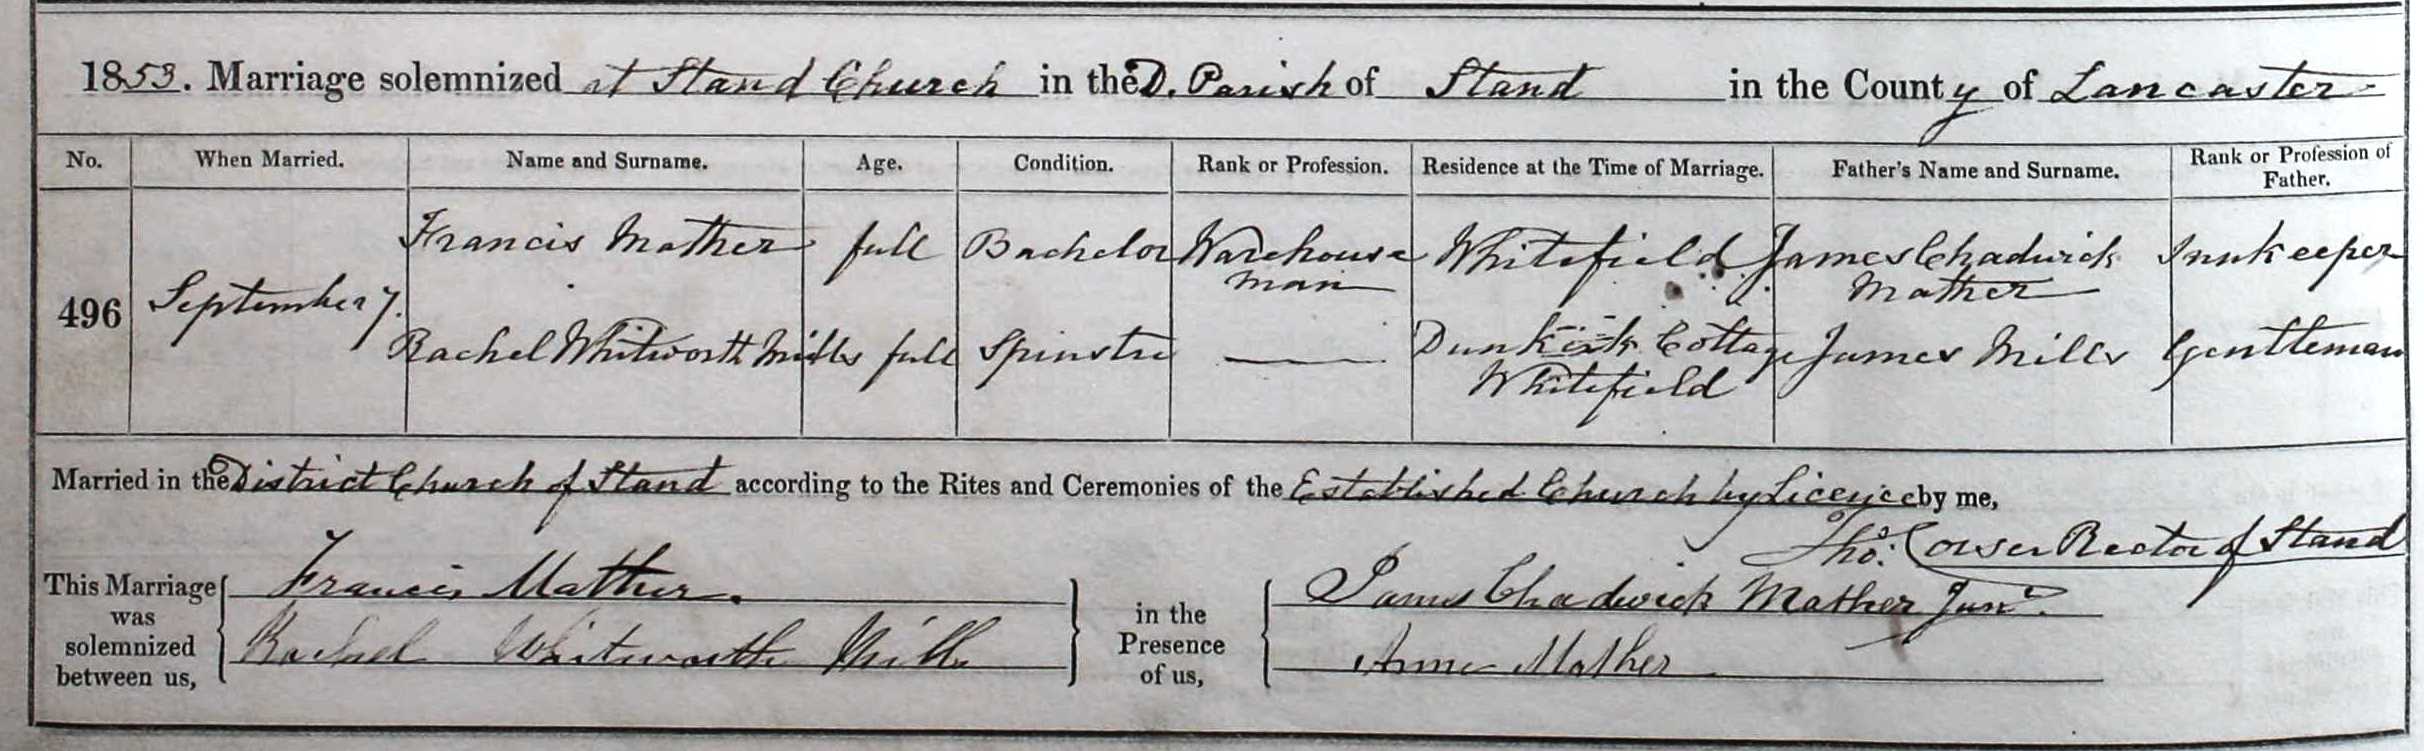 1853. Marriage solemnized at Stand Church in the D. Parish of Stand in the County of Lancaster
No. When Married. Name and Surname. Age. Condition. Rank or Profession. Residence at the Time of Marriage. Father's Name and Surname. Rank or Profession of Father.
496 September 7.
Francis Mather full Bachelor Warehouse man Whitefield James Chadwick Mather Innkeeper
Rachel Whitworth Mills full Spinster — Dunkirk Cottage Whitefield James Mills Gentleman
Married in the District Church of Stand according to the Rites and Ceremonies of the Established Church by Licence by me,
Thos. Rector of Stand
This Marriage was solemnized between us,
Francis Mather.
Rachel Whitworth Mills
in the Presence of us,
James Chadwick Mather Junr.
Anne Mather